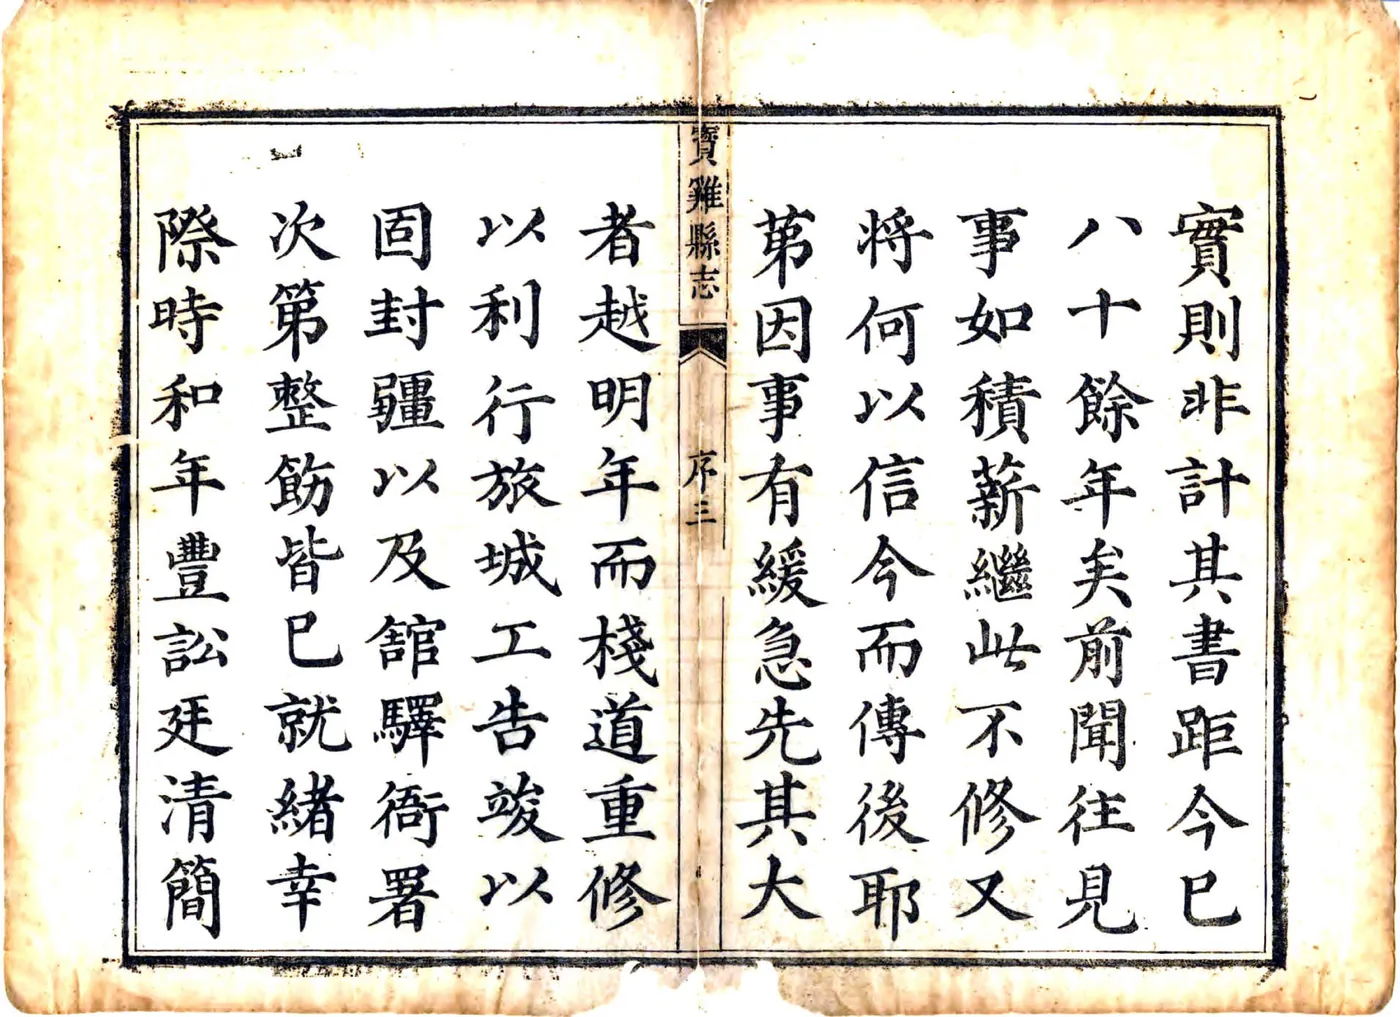 實則非計其書距今已
八十餘年矣前聞往見
事如積薪繼此不修又
將何以信今而傳後耶
苐因事有緩急先其大
寳雞縣志
序三
者越明年而棧道重修
以利行旅城工告竣以
固封疆以及舘驛衙署
次第整飭皆已就緒幸
際時和年豐訟廷清簡